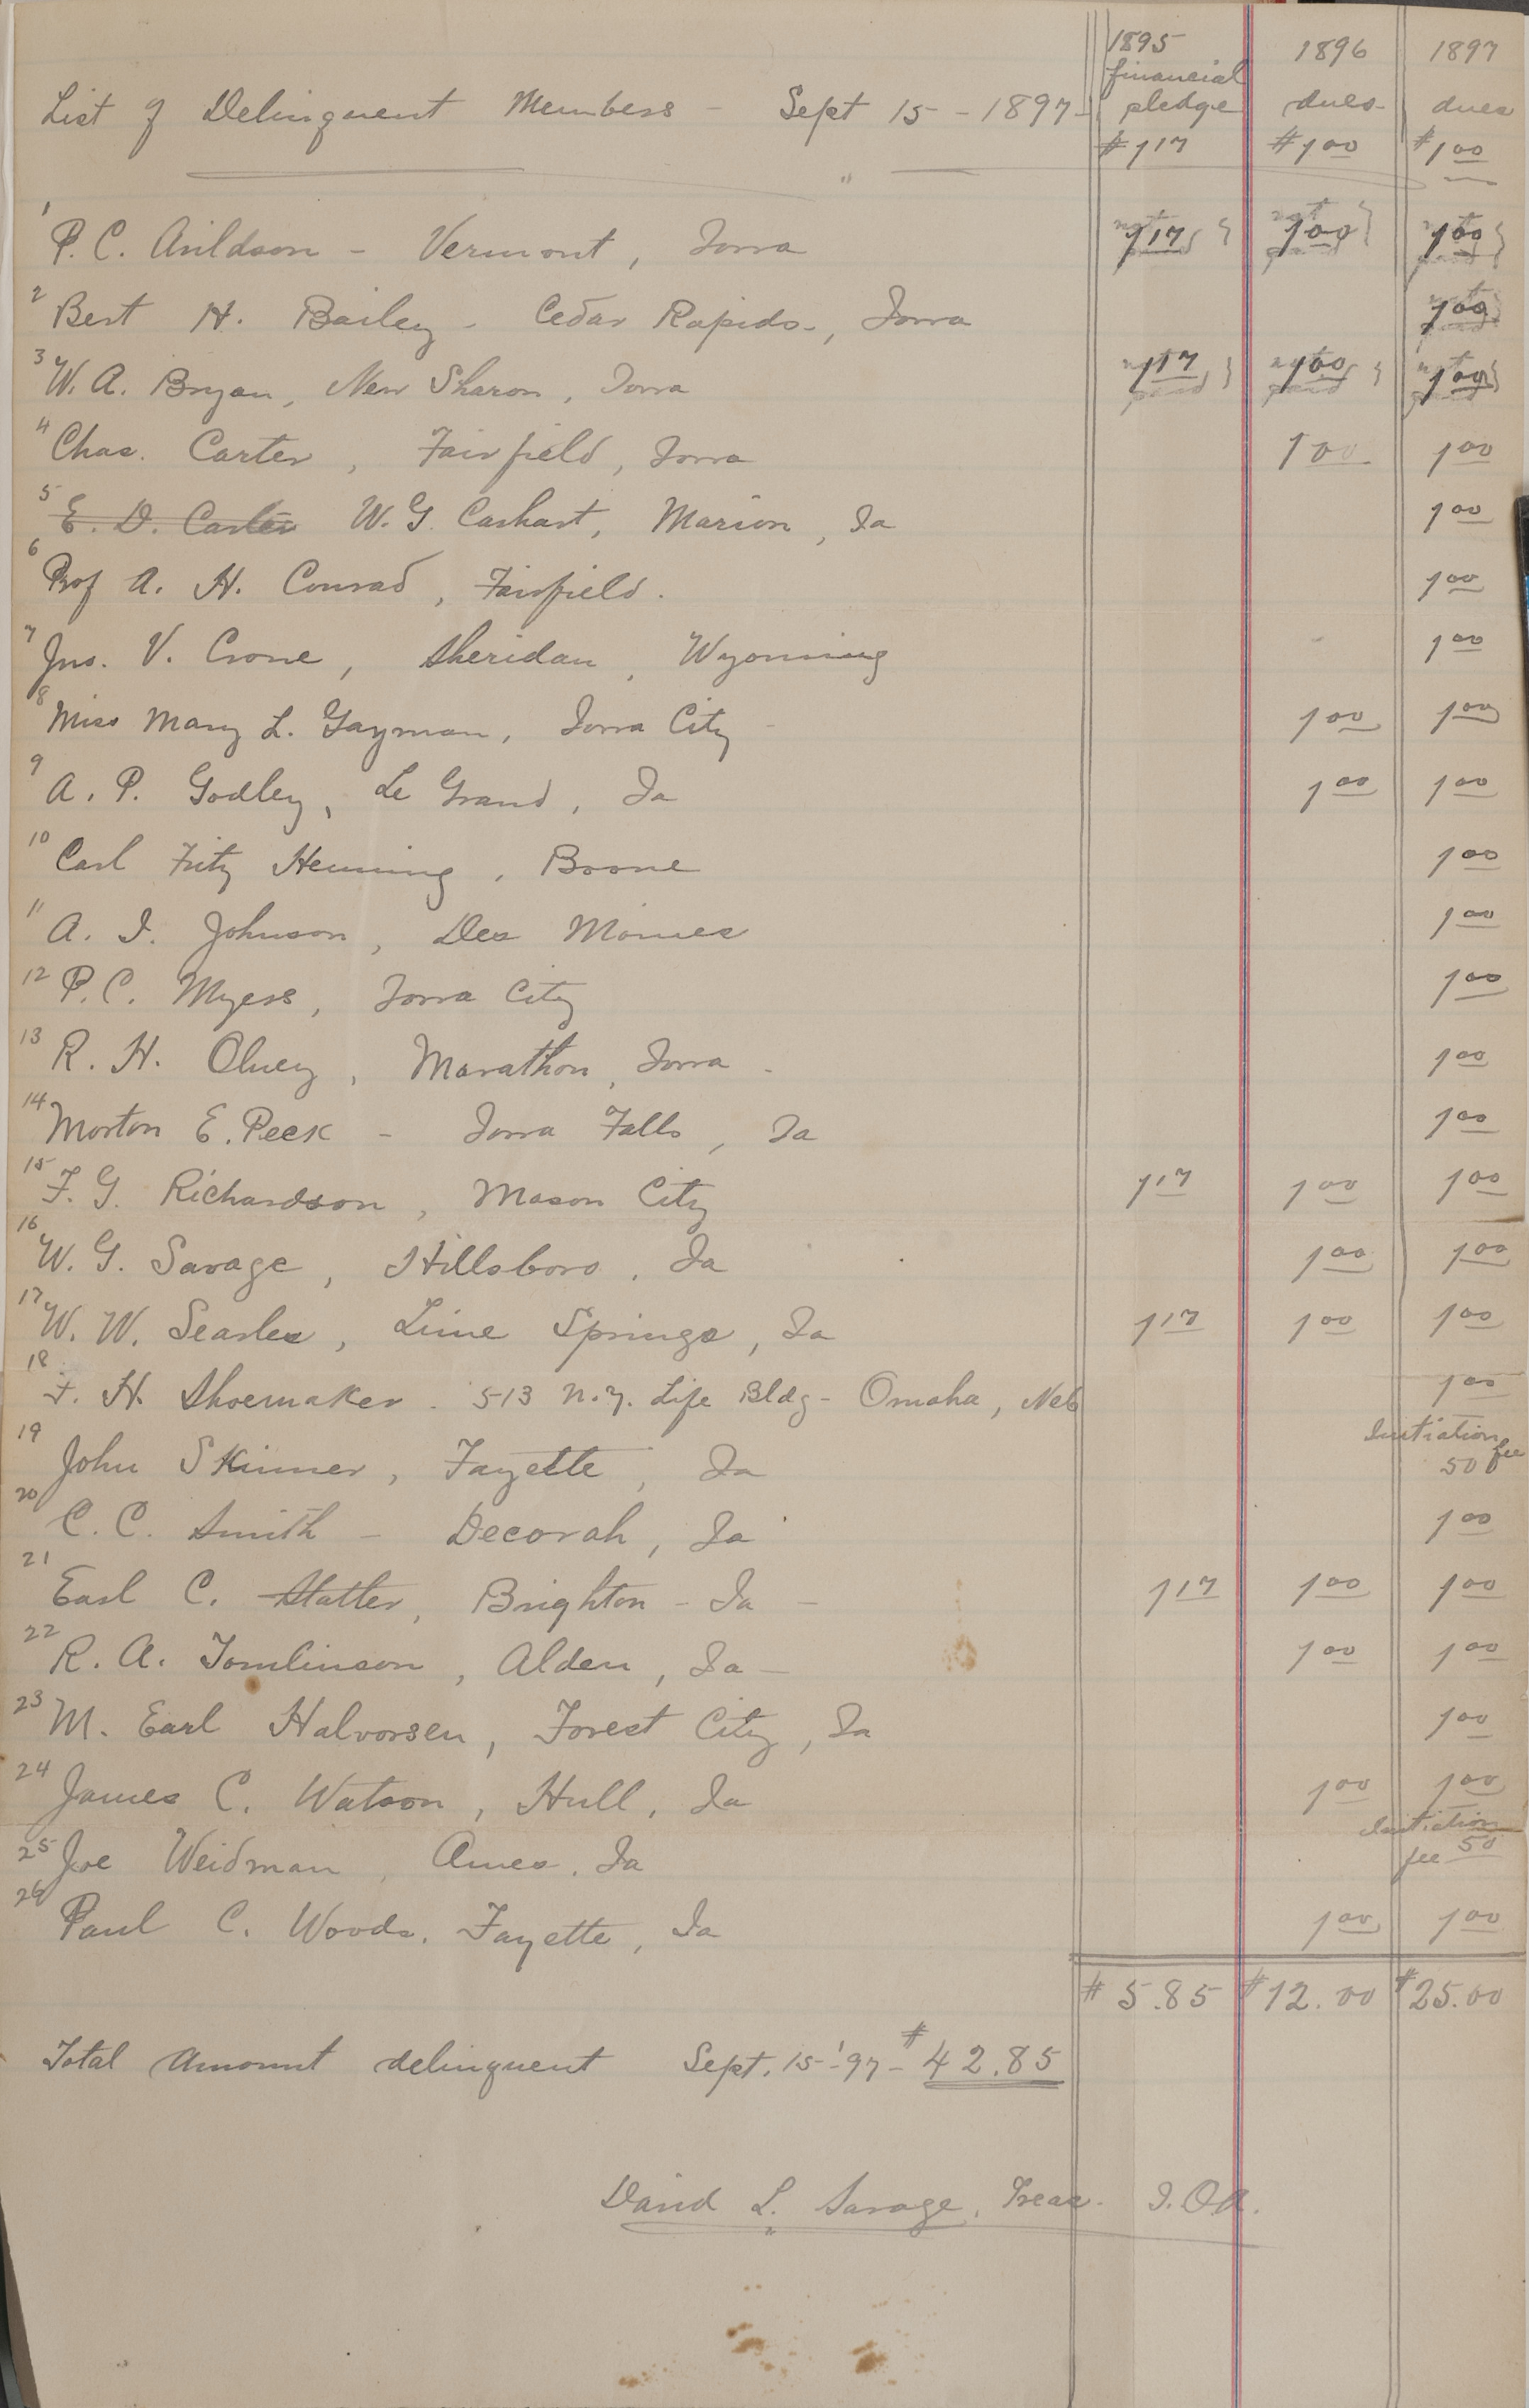 1895 1896 1897
financial
List of Delinquent Members - Sept 15 - 1897 - pledge dues dues
$1 17 $1 00 $1 00
1 P. C. Arildson - Vermont, Iowa not paid 1 17 not paid 1 00 not paid 1 00
2 Bert H. Bailey - Cedar Rapids, Iowa not paid 1 00
3 W. A. Bryan, New Sharon, Iowa not paid 1 17 not paid 1 00 not paid 1 00
4 Chas. Carter, Fairfield, Iowa 1 00 1 00
5 E. D. Carter W. G. Cashart, Marion, Ia 1 00
6 Prof A. H. Conrad, Fairfield. 1 00
7 Jno. V. Crone, Sheridan, Wyoming 1 00
8 Miss Mary L. Gayman, Iowa City - 1 00 1 00
9 A. P. Godley, Le Grand, Ia 1 00 1 00
10 Carl Fritz Henning, Boone 1 00
11 A. I. Johnson, Des Moines 1 00
12 P. C. Myers, Iowa City 1 00
13 R. H. Olney, Marathon, Iowa - 1 00
14 Morton E. Peck - Iowa Falls, Ia 1 00
15 F. G. Richardson, Mason City 1 17 1 00 1 00
16 W. G. Savage, Hillsboro, Ia 1 00 1 00
17 W. W. Searles, Lime Springs, Ia 1 17 1 00 1 00
18 F. H. Shoemaker - 513 N.Y. Life Bldg - Omaha, Neb 1 00
19 John Skinner, Fayette, Ia Initiation fee 50
20 C. C. Smith - Decorah, Ia 1 00
21 Earl C. Statler, Brighton - Ia - 1 17 1 00 1 00
22 R. A. Tomlinson, Alden, Ia - 1 00 1 00
23 M. Earl Halvorsen, Forest City, Ia 1 00
24 James C. Watson, Hull, Ia 1 00 1 00
25 Joe Weidman, Ames, Ia Initiation fee 50
26 Paul C. Woods, Fayette, Ia 1 00 1 00
$5.85 $12.00 $25.00
Total amount delinquent Sept. 15 - '97 - $42.85
David L. Savage, Treas. I.O.A.